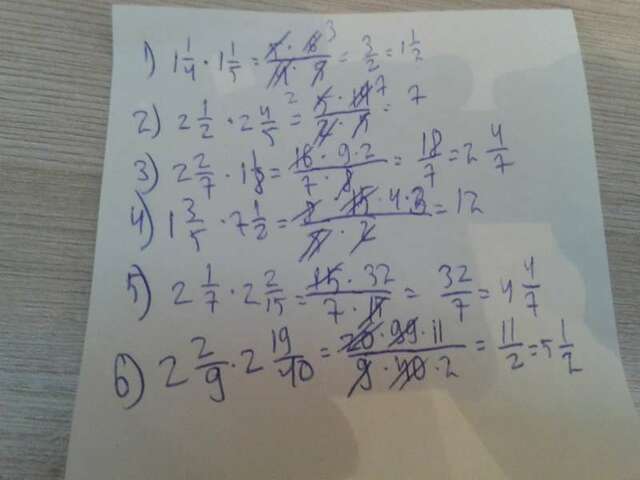 1) 1 1/4 · 1 1/5 = 5 · 6 3/4 · 5 = 3/2 = 1 1/2
2) 2 1/2 · 2 4/5 = 5 · 14 7/2 · 5 = 7
3) 2 2/7 · 1 1/8 = 16 · 9 · 2/7 · 8 = 18/7 = 2 4/7
4) 1 3/5 · 7 1/2 = 8 · 15 · 4 · 3/5 · 2 = 12
5) 2 1/7 · 2 2/15 = 15 · 32/7 · 15 = 32/7 = 4 4/7
6) 2 2/9 · 2 19/40 = 20 · 99 · 11/9 · 40 · 2 = 11/2 = 5 1/2